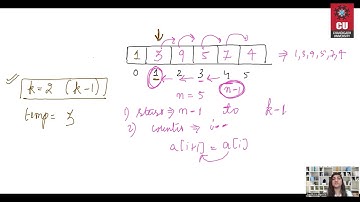 CU
CHANDIGARH
UNIVERSITY
1 3 9 5 7 4 ⇒ 1,3,9,5,7,4
0 1 2 3 4 5
n-1
n = 5
k=2 (k-1)
temp = 3
1) start ⇒ n-1 to k-1
2) counter ⇒ i--
a[i+1] = a[i]